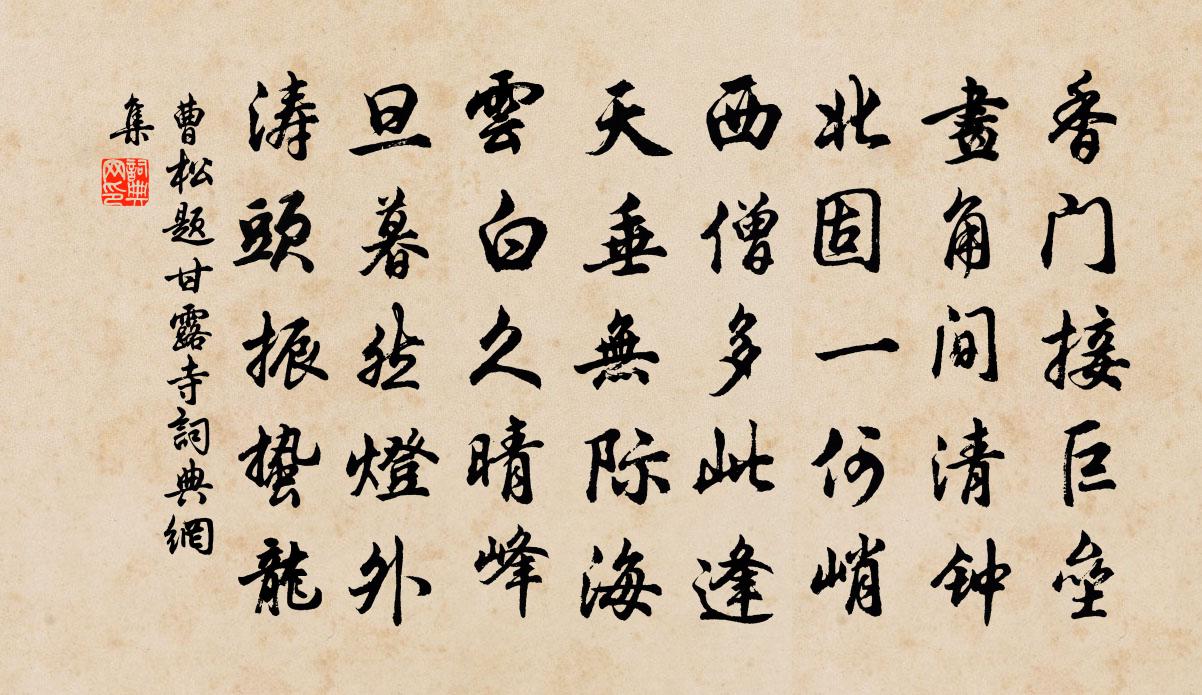 香门接巨壘
畫角间清钟
北固一何峭
西僧多此逢
天垂無际海
雲白久晴峰
旦暮然燈外
涛頭振蛰龍
曹松题甘露寺詞典網
集
詞典
网印